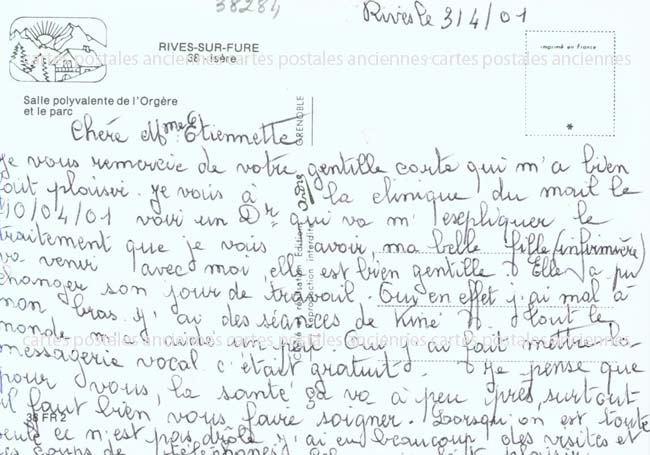 38284
Rives le 3/4/01
RIVES-SUR-FURE
38 - Isère
imprimé en France
cartes postales anciennes-cartes postales anciennes-cartes postales anciennes
Salle polyvalente de l'Orgère
et le parc
GRENOBLE
Chére Mme Etiennette
je vous remercie de votre gentille carte qui m'a bien
fait plaisir. je vais à la clinique du mail le
10/04/01 voir un Dr qui va m'esepliquer le
traitement que je vais avoir, ma belle fille (infirmière)
va venir avec moi, elle est bien gentille Elle a pu
changer son jour de travail. Ouy en effet j'ai mal à
mon bras. j'ai des séances de Kiné tout le
monde m'aide un peu. j'ai fait mettre la
messagerie vocal c'était gratuit. Je pense que
pour vous, la santé ça va à peu près, surtout
il faut bien vous faire soigner. Lorsqu'on est toute
seule ce n'est pas drôle j'ai eu beaucoup des visites et
coups de téléphones plaisir
38 FR 2
André
Edition
reproduction interdite